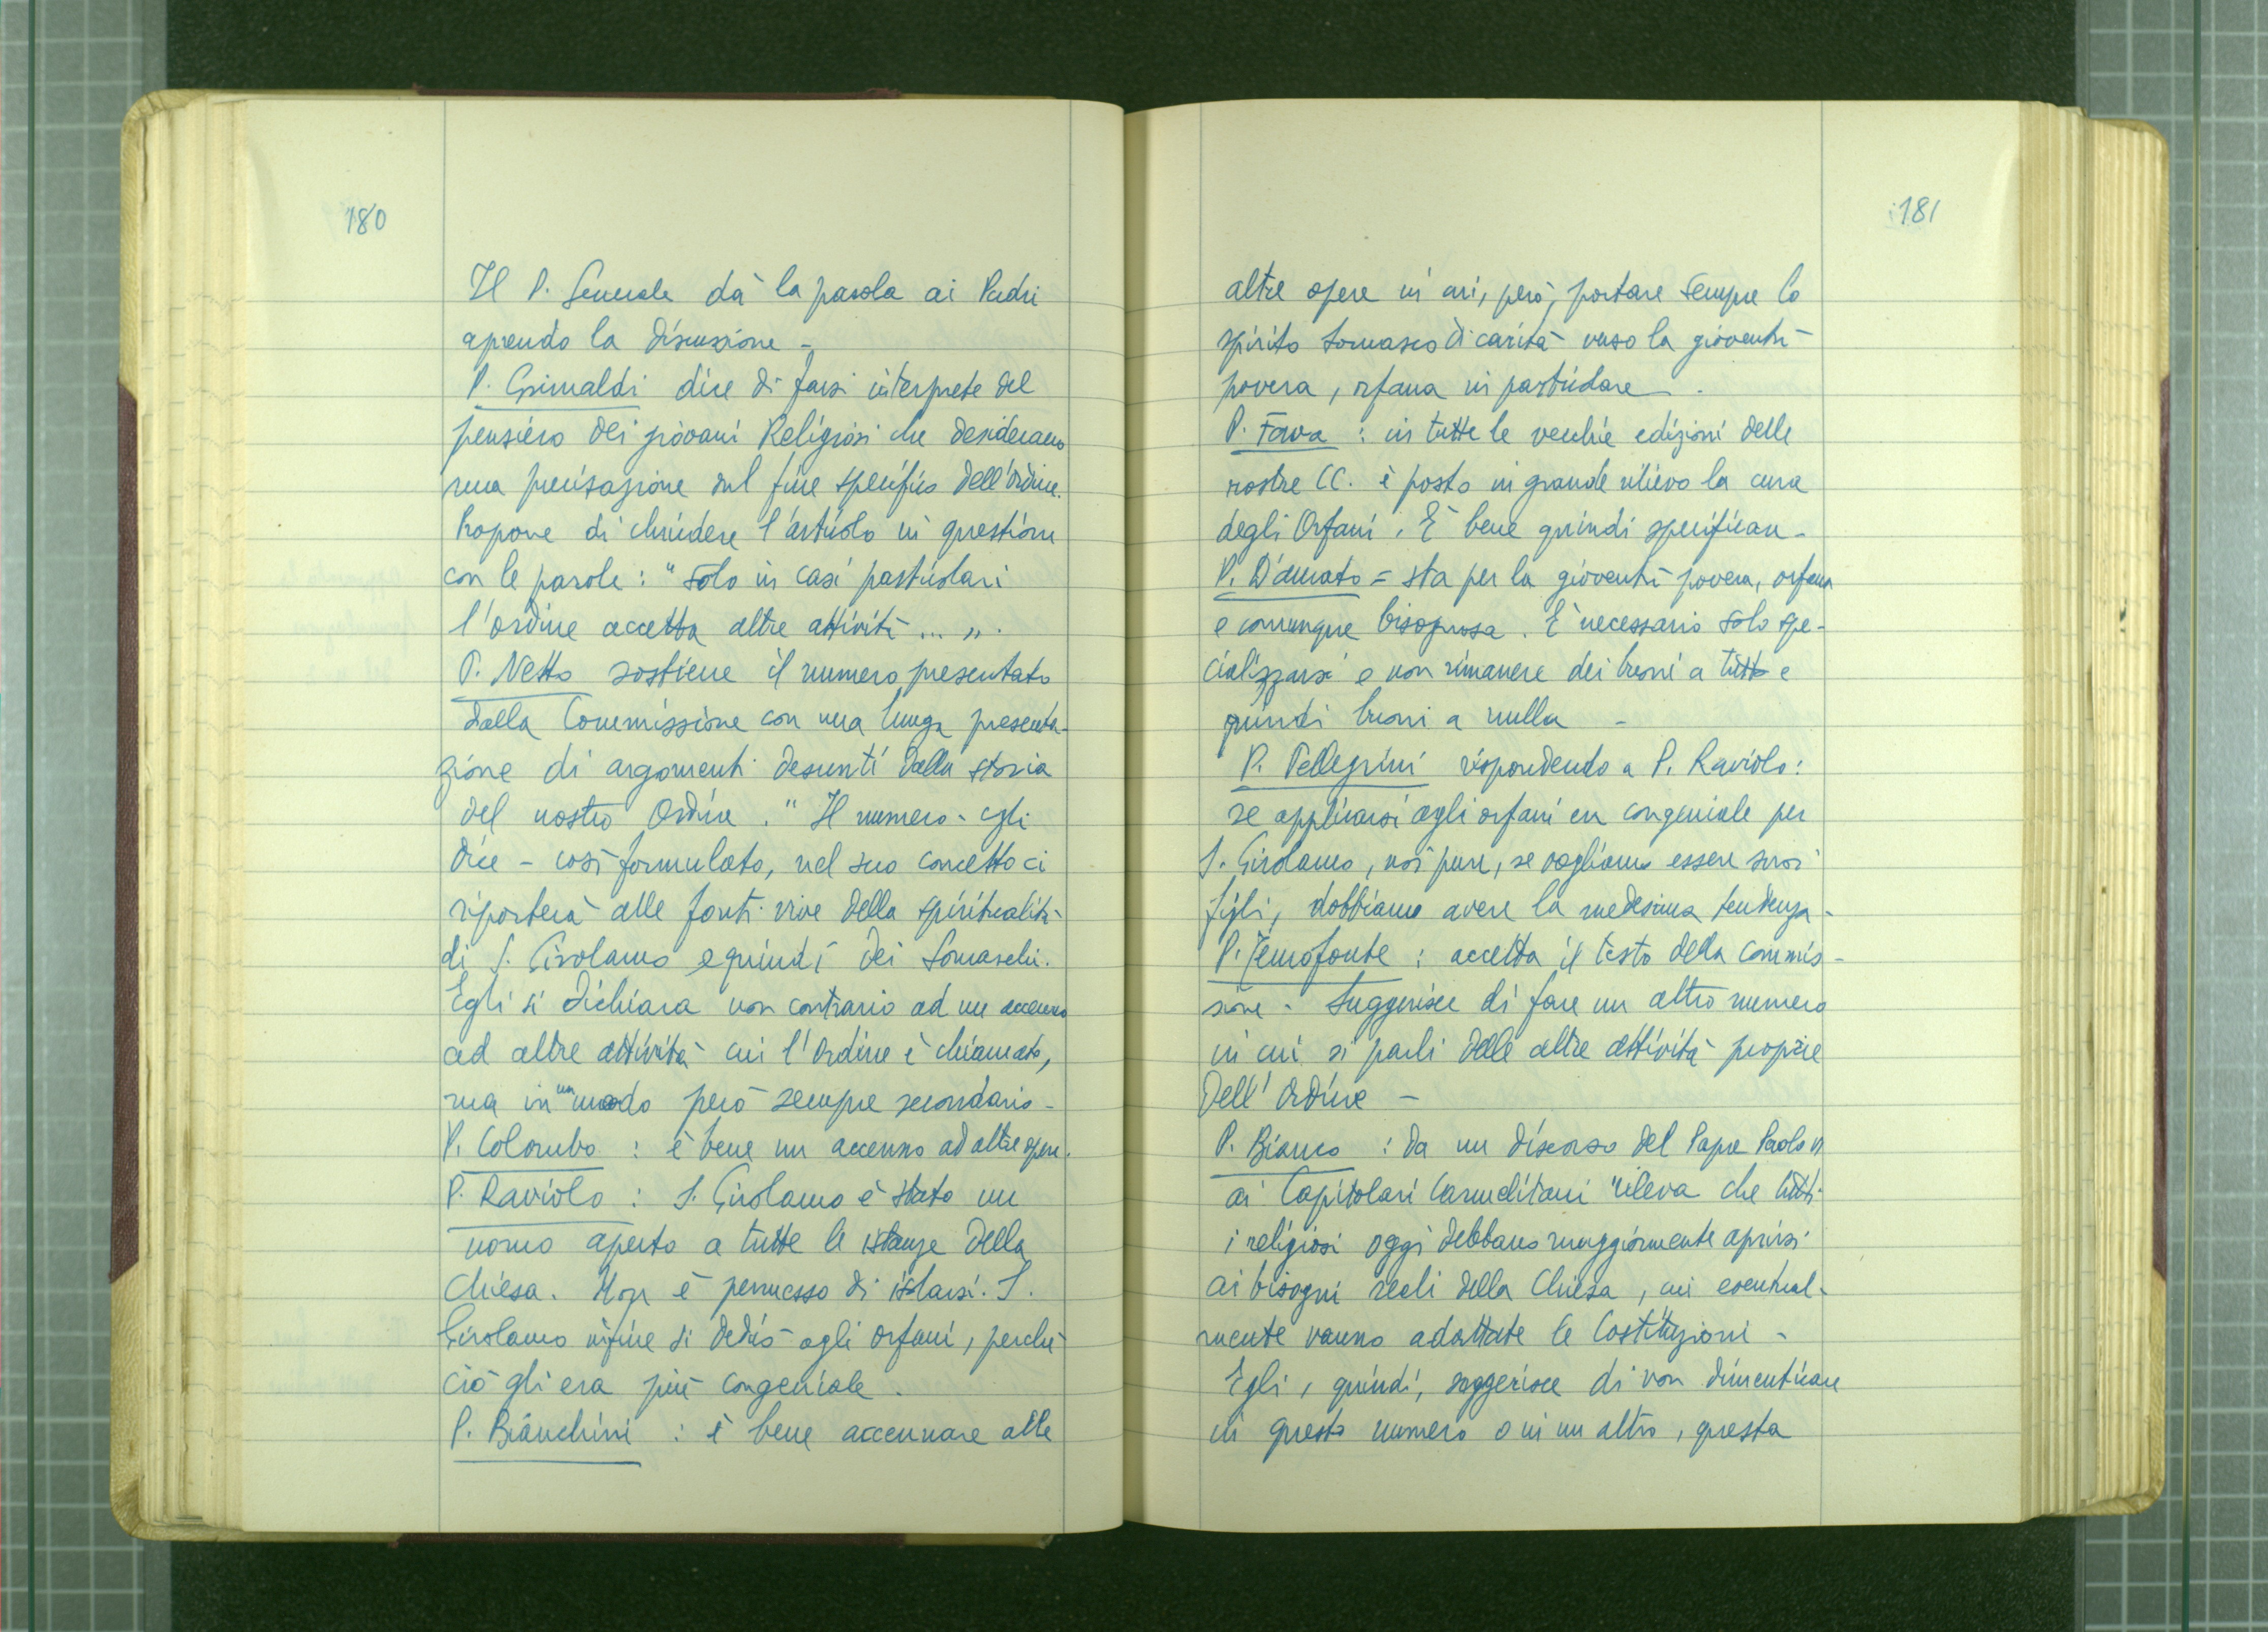 180
Il P. Generale dà la parola ai Padri
aprendo la discussione -
P. Grimaldi dice di farsi interprete del
pensiero dei giovani Religiosi che desiderano
una precisazione sul fine specifico dell'Ordine.
Propone di chiudere l'articolo in questione
con le parole: "solo in casi particolari
l'Ordine accetta altre attività ... ".
P. Netto sostiene il numero presentato
dalla Commissione con una lunga presenta-
zione di argomenti desunti dalla storia
del nostro Ordine. "Il numero - egli
dice - così formulato, nel suo concetto ci
riporterà alle fonti vive della spiritualità
di S. Girolamo e quindi dei Somaschi.
Egli si dichiara non contrario ad un accenno
ad altre attività cui l'Ordine è chiamato,
ma in un modo però sempre secondario -
P. Colombo : è bene un accenno ad altre opere.
P. Raviolo : S. Girolamo è stato un
uomo aperto a tutte le istanze della
Chiesa. Non è permesso di isolarsi. S.
Girolamo infine si dedicò agli orfani, perché
ciò gli era più congeniale.
P. Bianchini : è bene accennare alle
181
altre opere in cui, però, portare sempre lo
spirito somasco di carità verso la gioventù
povera, orfana in particolare.
P. Fava : in tutte le vecchie edizioni delle
nostre CC. è posto in grande rilievo la cura
degli Orfani. È bene quindi specificare -
P. D'Amato = sta per la gioventù povera, orfana
e comunque bisognosa. È necessario solo spe-
cializzarsi e non rimanere dei buoni a tutto e
quindi buoni a nulla -
P. Pellegrini rispondendo a P. Raviolo:
se applicarsi agli orfani era congeniale per
S. Girolamo, noi pure, se vogliamo essere suoi
figli, dobbiamo avere la medesima tendenza -
P. Temofonte : accetta il testo della commis-
sione - Suggerisce di fare un altro numero
in cui si parli delle altre attività proprie
dell'Ordine -
P. Bianco : da un discorso del Papa Paolo VI
ai Capitolari Carmelitani rileva che tutti
i religiosi oggi debbano maggiormente aprirsi
ai bisogni reali della Chiesa, cui eventual-
mente vanno adattate le Costituzioni -
Egli, quindi, suggerisce di non dimenticare
in questo numero o in un altro, questa